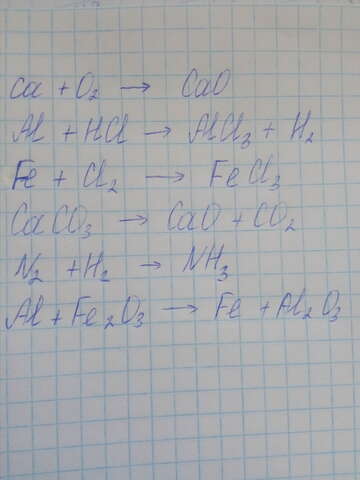 Ca + O₂ → CaO
Al + HCl → AlCl₃ + H₂
Fe + Cl₂ → FeCl₃
CaCO₃ → CaO + CO₂
N₂ + H₂ → NH₃
Al + Fe₂O₃ → Fe + Al₂O₃